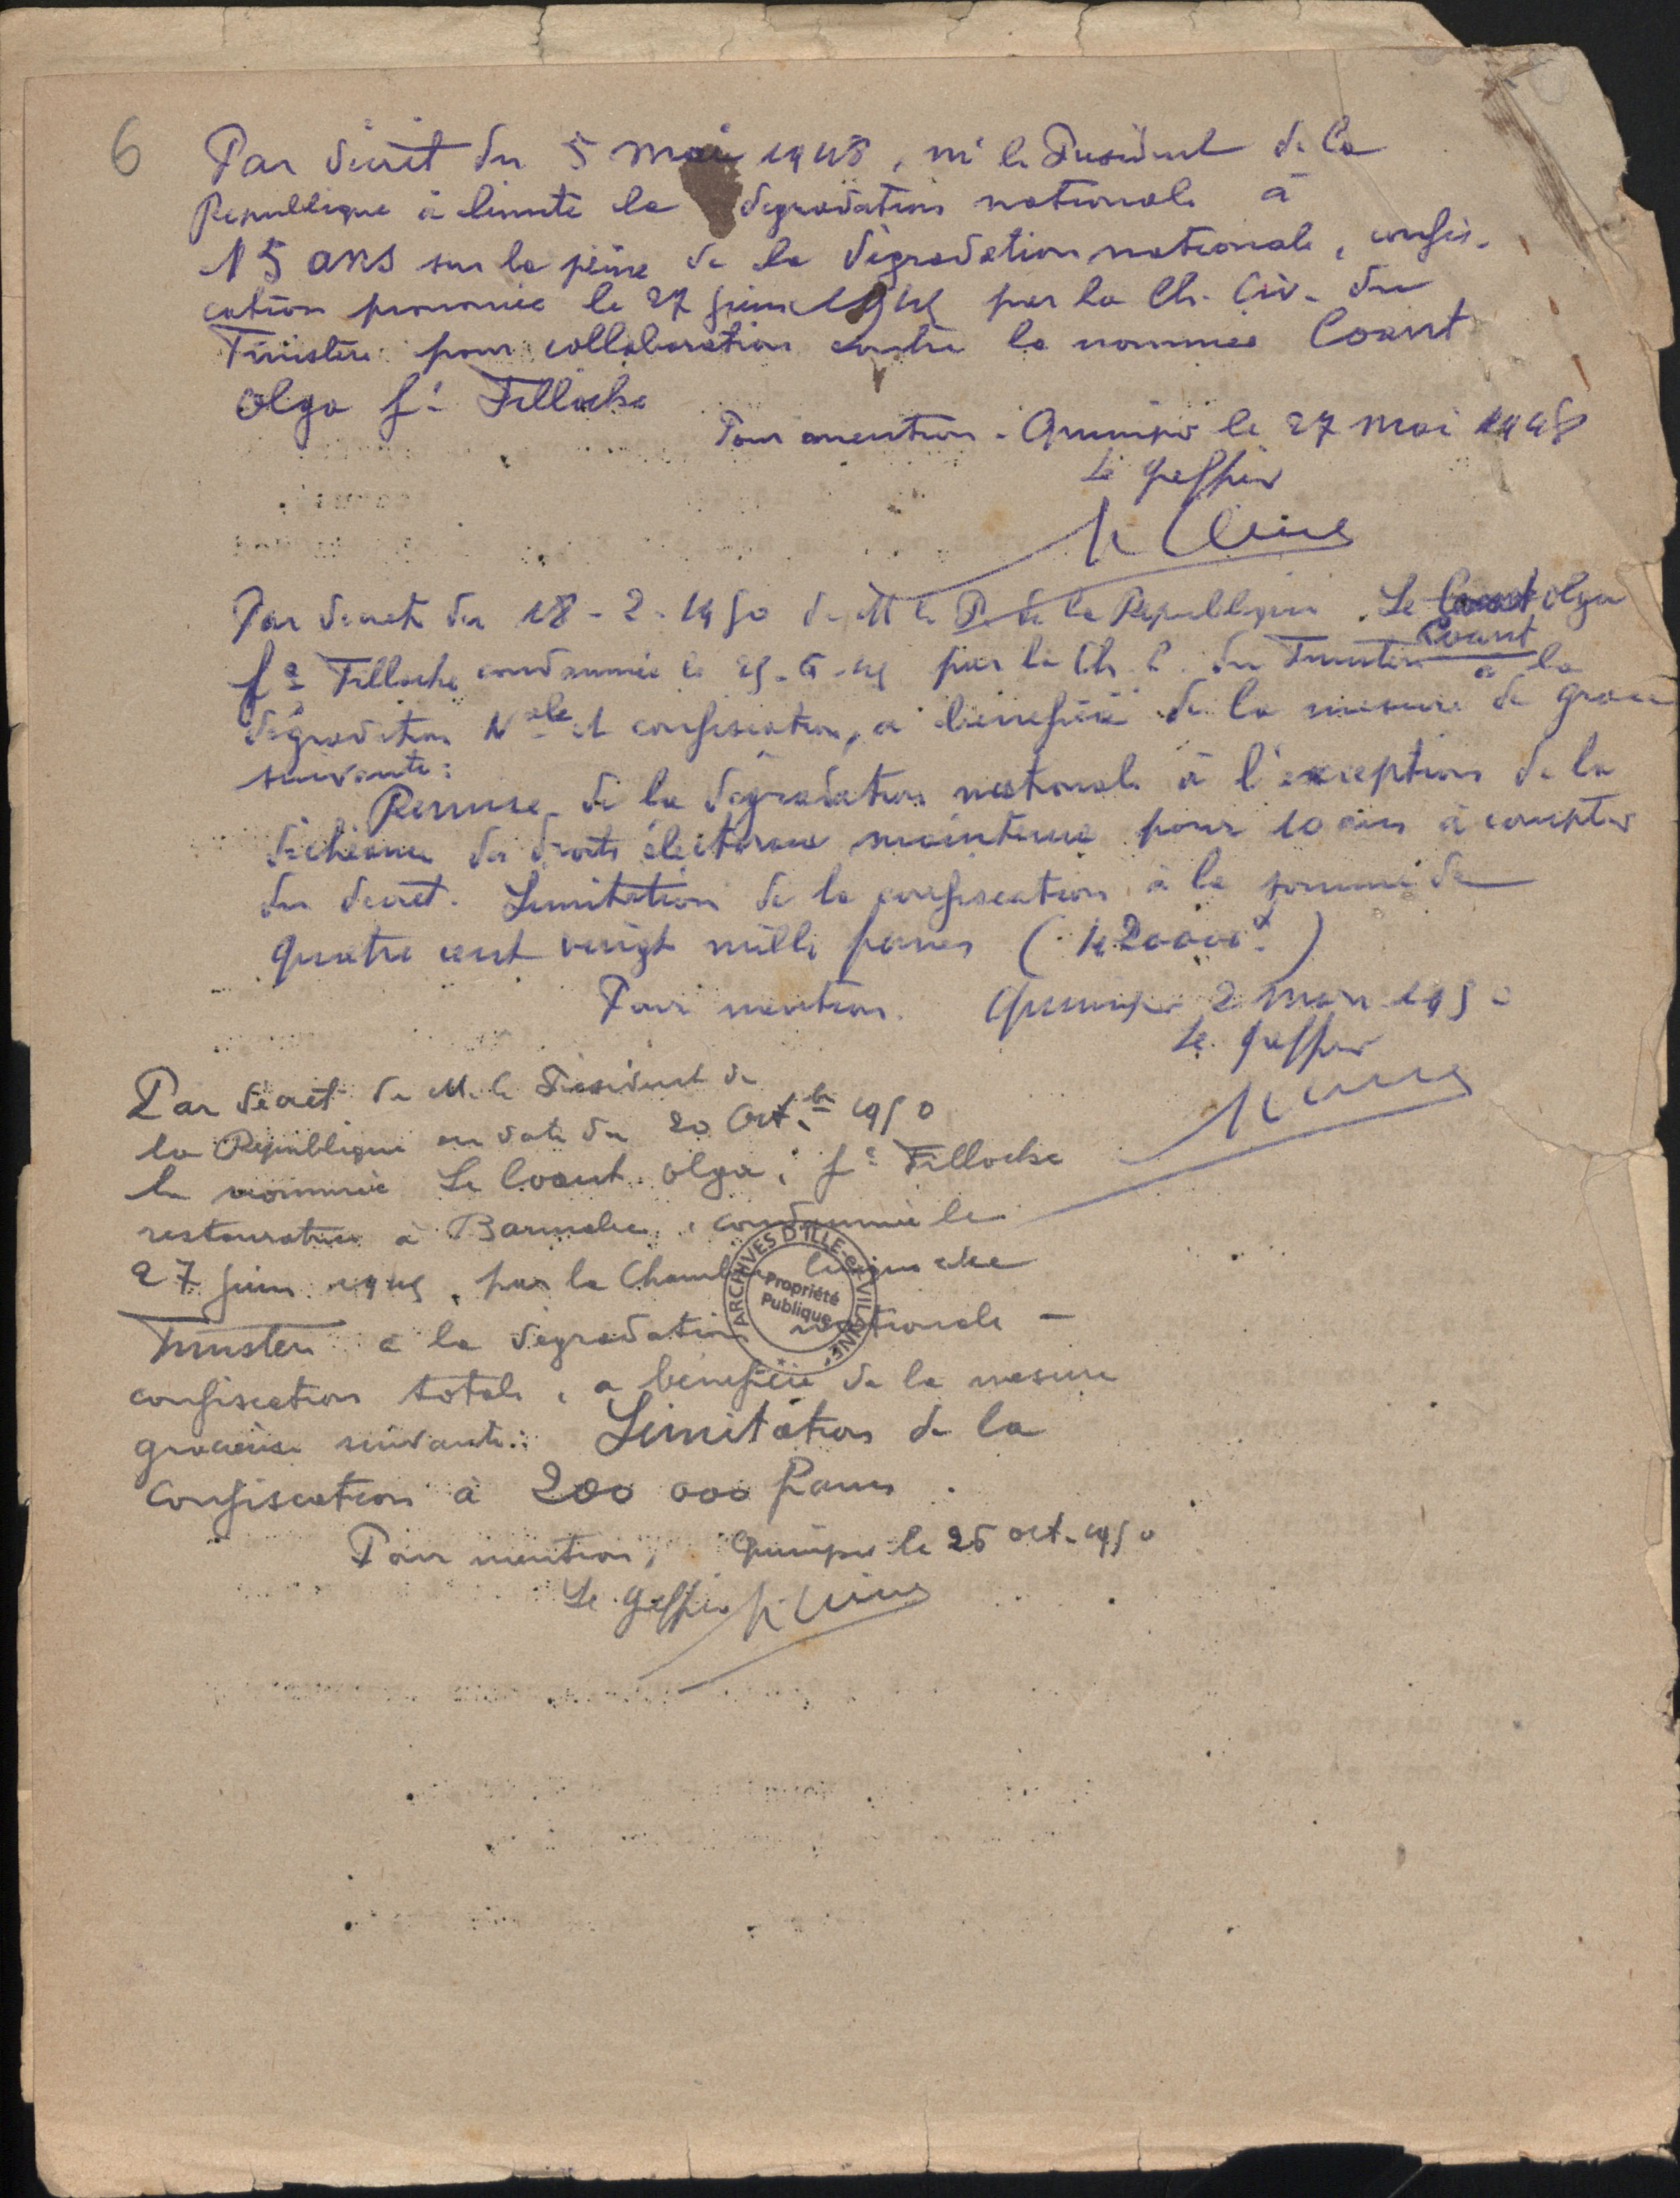 6
Par décret du 5 mai 1948, Mr le Président de la
République a limité la dégradation nationale à
15 ans sur la peine de la dégradation nationale, confis-
cation prononcée le 27 juin 1945 par la Ch. Civ. du
Finistère pour collaboration contre la nommée Coant
Olga fe Filloche
Pour mention. Quimper le 27 mai 1948
Le greffier
Par décret du 18-2-1950 de M le P. de la République Le Olga
Coant
fe Filloche condamnée le par la Ch. C. du Finistère à la
dégradation Nale et confiscation, a bénéficié de la mesure de grâce
suivante :
Remise de la dégradation nationale à l'exception de la
déchéance des droits électoraux maintenue pour 10 ans à compter
du décret. Limitation de la confiscation à la somme de
quatre cent vingt mille francs (420000f)
Pour mention. Quimper 2 mars 1950
Le greffier
Par décret de M. le Président de
la République en date du 20 Oct.bre 1950
la nommée Le Coant Olga, fe Filloche
restauratrice à Bannalec, condamnée le
27 juin 1945, par la Chambre Civique du
Finistère à la dégradation nationale -
confiscation totale, a bénéficié de la mesure
gracieuse suivante : Limitation de la
Confiscation à 200 000 Francs.
Pour mention, Quimper le 26 oct. 1950
Le greffier
ARCHIVES D'ILLE-et-VILAINE
Propriété
Publique